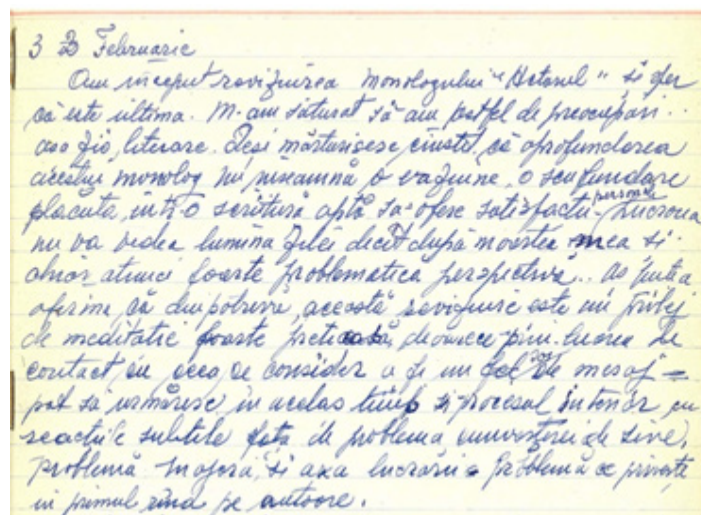 3 Februarie
Am început revizuirea monologului " " și sper
că este ultima. M-am săturat să am astfel de preocupări..
așa zis, literare. Deși mărturisesc cinstit, că aprofundarea
acestui monolog nu înseamnă o evaziune, o scufundare
plăcută, într-o scriitură aptă să-ofere satisfacții personale. Lucrarea
nu va vedea lumina zilei decît după moartea mea și
chiar atunci foarte problematica perspectivă.. Aș putea
afirma, că dimpotrivă, această revizuire este un prilej
de meditație foarte prețioasă, deoarece prin luarea de
contact cu ceea ce consider a fi un fel de mesaj =
pot să urmăresc în același timp și procesul interior cu
reacțiile subtile față de problema cunoașterii de sine,
problemă majoră, și axa lucrării = problemă ce privește
în primul rînd pe autoare.